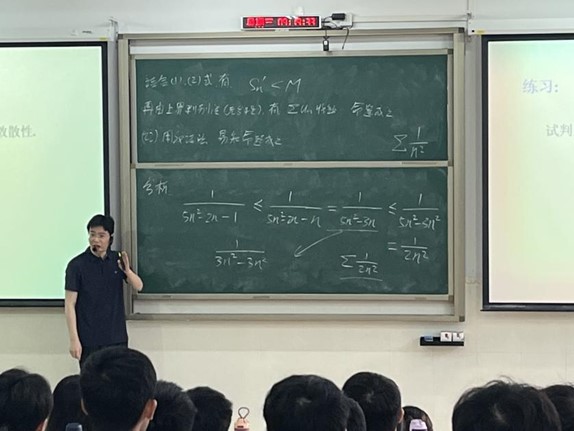 星期三
结合(1),(2)式有 Sn' < M
再由上界判别法(充分性),有 ΣUn 收敛 命题成立
(2) 用反证法 易知命题成立
Σ 1/n²
分析
1/(5n²-2n-1) ≤ 1/(5n²-2n-n) = 1/(5n²-3n) ≤ 1/(5n²-3n²)
= 1/(2n²)
1/(3n²-3n²)
Σ 1/(2n²)
散性.
练习:
试判